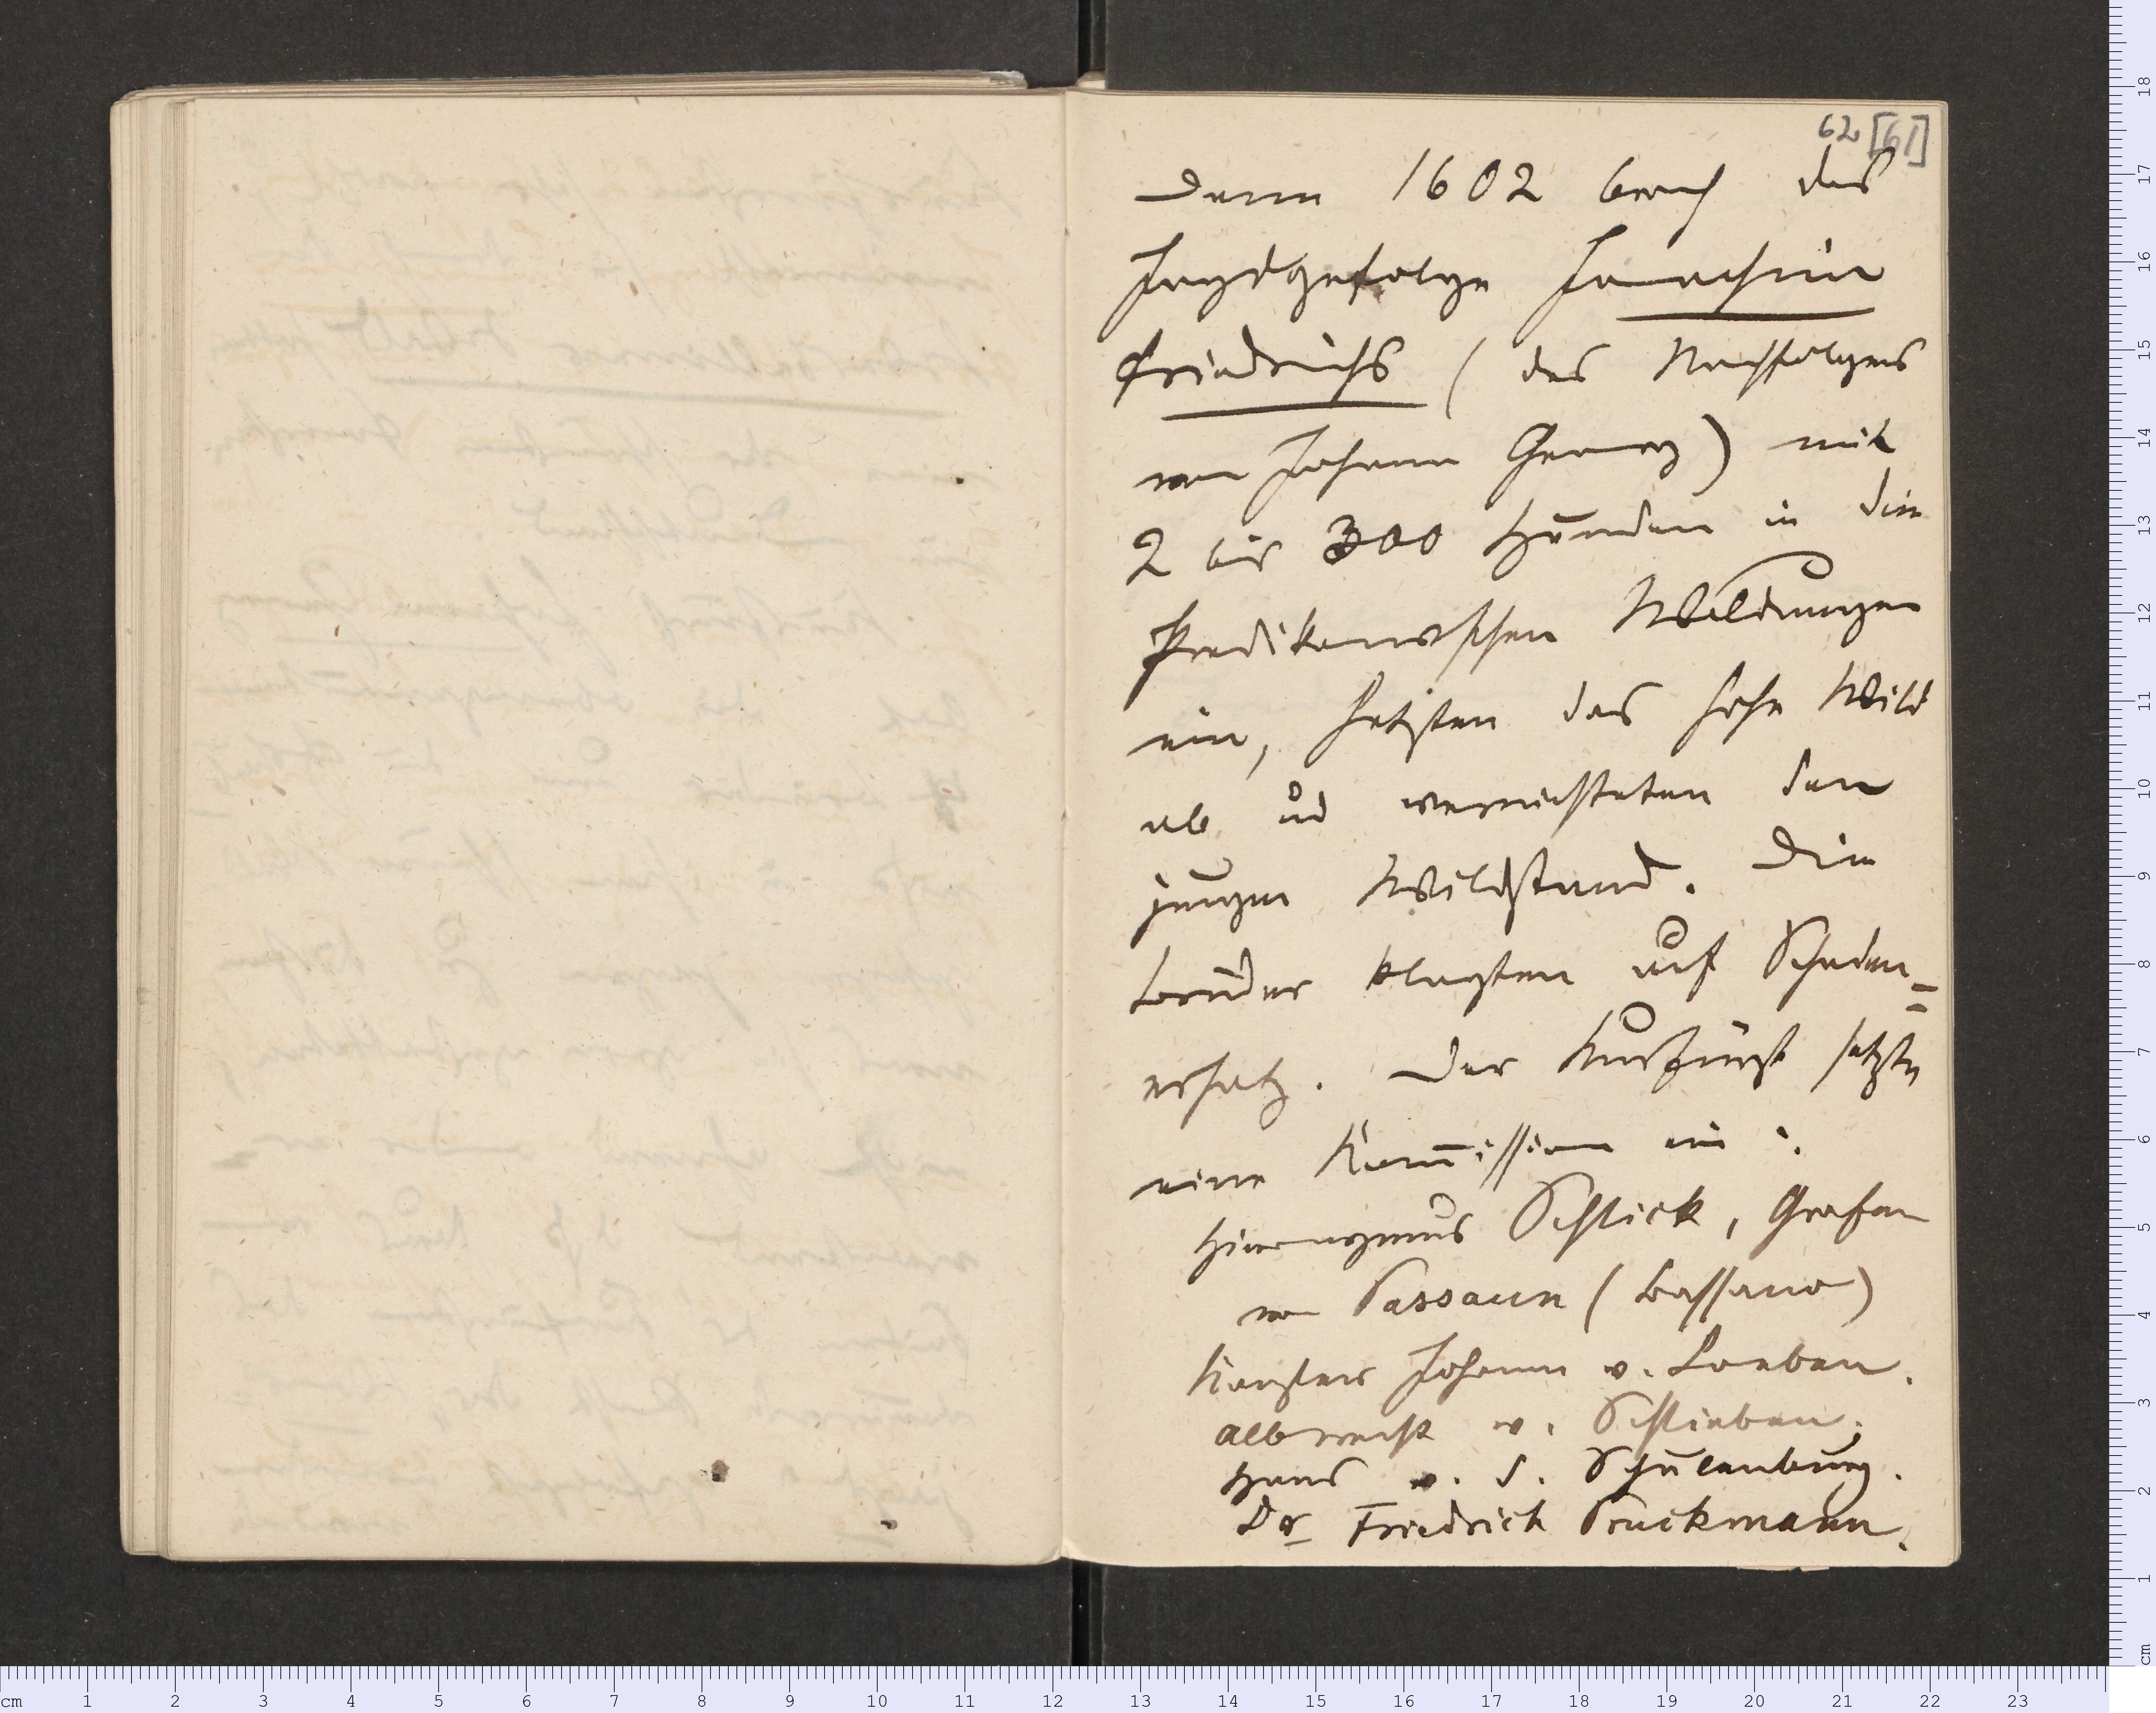 62 [61]
Denn 1602 brach das
Jagdgefolge Joachim
Friedrichs (des Nachfolgers
von Johann Georg) mit
2 bis 300 Hunden in die
Predikowschen Waldungen
ein, hetzten das hohe Wild
ab und vernichteten den
jungen Wildstand. Die
Brüder klagten auf Schaden=
ersatz. Der Kurfürst setzte
eine Kommission ein:
Hieronymus Schlick, Grafen
von Passaun (Bassano)
Kanzler Johann v. Loeben.
Albrecht v. Schlieben.
Hans v. d. Schulenburg.
Dr Friedrich Pruckmann.